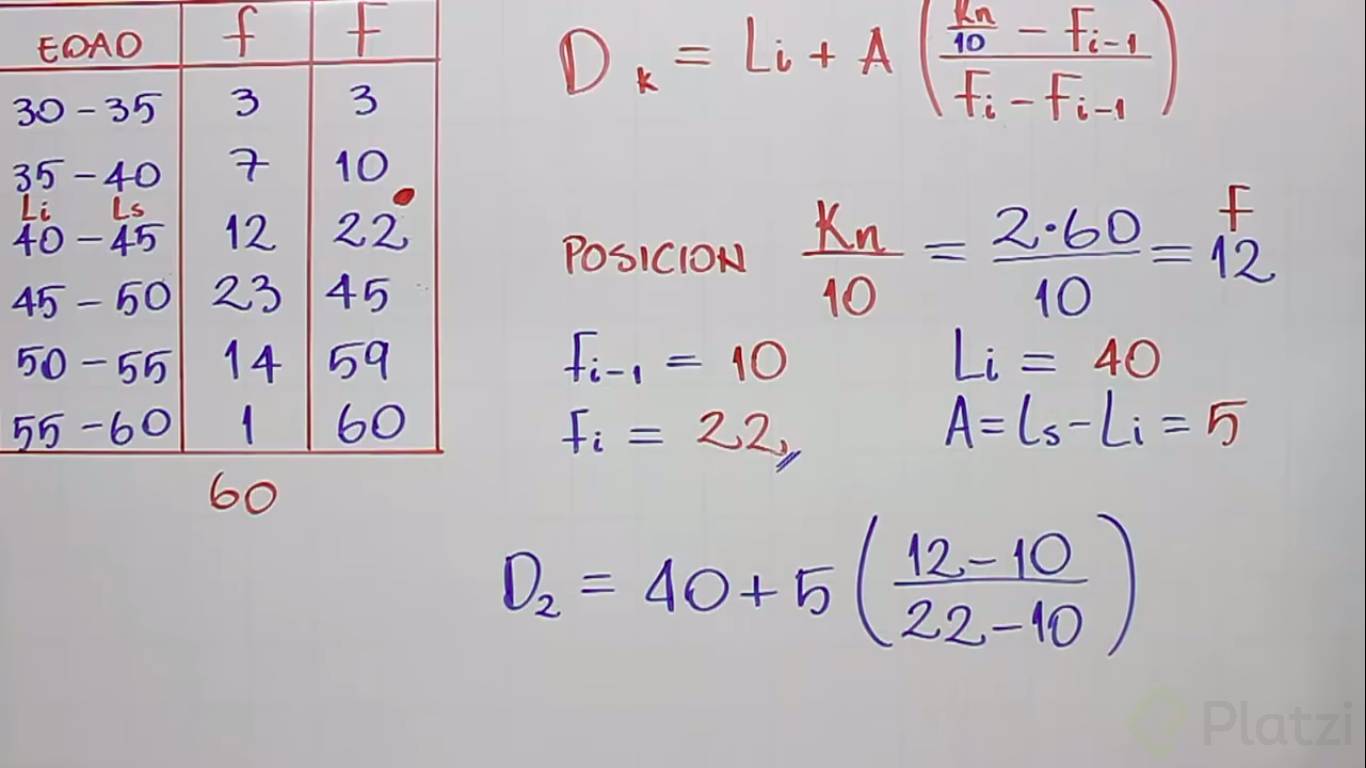 EDAD f F
30 - 35 3 3
35 - 40 7 10
Li Ls
40 - 45 12 22
45 - 50 23 45
50 - 55 14 59
55 - 60 1 60
60
D_k = Li + A ( (Kn/10 - F_{i-1}) / (F_i - F_{i-1}) )
POSICION Kn/10 = 2·60/10 = 12 F
F_{i-1} = 10 Li = 40
F_i = 22 A = Ls - Li = 5
D_2 = 40 + 5 ( (12 - 10) / (22 - 10) )
Platzi